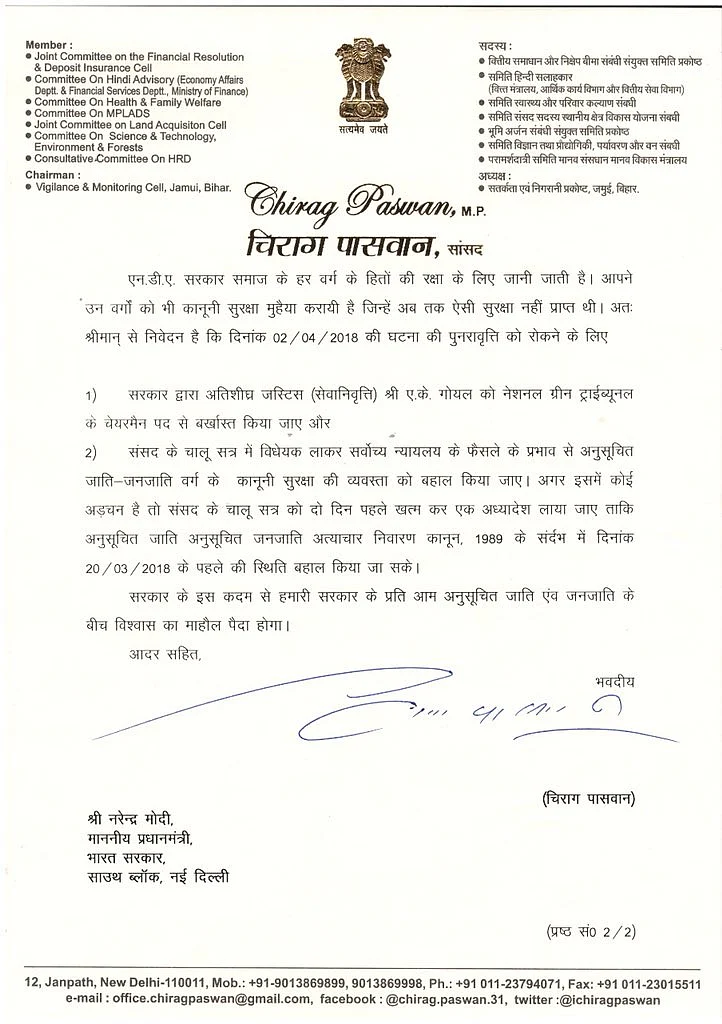 Member :
● Joint Committee on the Financial Resolution
& Deposit Insurance Cell
● Committee On Hindi Advisory (Economy Affairs
Deptt. & Financial Services Deptt., Ministry of Finance)
● Committee On Health & Family Welfare
● Committee On MPLADS
● Joint Committee on Land Acquisiton Cell
● Committee On Science & Technology,
Environment & Forests
● Consultative Committee On HRD
Chairman :
● Vigilance & Monitoring Cell, Jamui, Bihar.
सत्यमेव जयते
सदस्य :
● वित्तीय समाधान और निक्षेप बीमा संबंधी संयुक्त समिति प्रकोष्ठ
● समिति हिन्दी सलाहकार
(वित्त मंत्रालय, आर्थिक कार्य विभाग और वित्तीय सेवा विभाग)
● समिति स्वास्थ्य और परिवार कल्याण संबधी
● समिति संसद सदस्य स्थानीय क्षेत्र विकास योजना संबधी
● भूमि अर्जन संबंधी संयुक्त समिति प्रकोष्ठ
● समिति विज्ञान तथा प्रौद्योगिकी, पर्यावरण और वन संबधी
● परामर्शदात्री समिति मानव संसधान मानव विकास मंत्रालय
अध्यक्ष :
● सतर्कता एवं निगरानी प्रकोष्ट, जमुई, बिहार.
Chirag Paswan, M.P.
चिराग पासवान, सांसद
एन.डी.ए. सरकार समाज के हर वर्ग के हितों की रक्षा के लिए जानी जाती है। आपने
उन वर्गों को भी कानूनी सुरक्षा मुहैया करायी है जिन्हें अब तक ऐसी सुरक्षा नहीं प्राप्त थी। अतः
श्रीमान् से निवेदन है कि दिनांक 02/04/2018 की घटना की पुनरावृत्ति को रोकने के लिए
1) सरकार द्वारा अतिशीघ्र जस्टिस (सेवानिवृत्ति) श्री ए.के. गोयल को नेशनल ग्रीन ट्राईब्यूनल
के चेयरमैन पद से बर्खास्त किया जाए और
2) संसद के चालू सत्र में विधेयक लाकर सर्वोच्य न्यायलय के फैसले के प्रभाव से अनुसूचित
जाति–जनजाति वर्ग के कानूनी सुरक्षा की व्यवस्ता को बहाल किया जाए। अगर इसमें कोई
अड़चन है तो संसद के चालू सत्र को दो दिन पहले खत्म कर एक अध्यादेश लाया जाए ताकि
अनुसूचित जाति अनुसूचित जनजाति अत्याचार निवारण कानून, 1989 के संर्दभ में दिनांक
20/03/2018 के पहले की स्थिति बहाल किया जा सके।
सरकार के इस कदम से हमारी सरकार के प्रति आम अनुसूचित जाति एंव जनजाति के
बीच विश्वास का माहौल पैदा होगा।
आदर सहित,
भवदीय
(चिराग पासवान)
श्री नरेन्द्र मोदी,
माननीय प्रधानमंत्री,
भारत सरकार,
साउथ ब्लॉक, नई दिल्ली
(प्रष्ठ सं0 2/2)
12, Janpath, New Delhi-110011, Mob.: +91-9013869899, 9013869998, Ph.: +91 011-23794071, Fax: +91 011-23015511
e-mail : office.chiragpaswan@gmail.com, facebook : @chirag.paswan.31, twitter :@ichiragpaswan